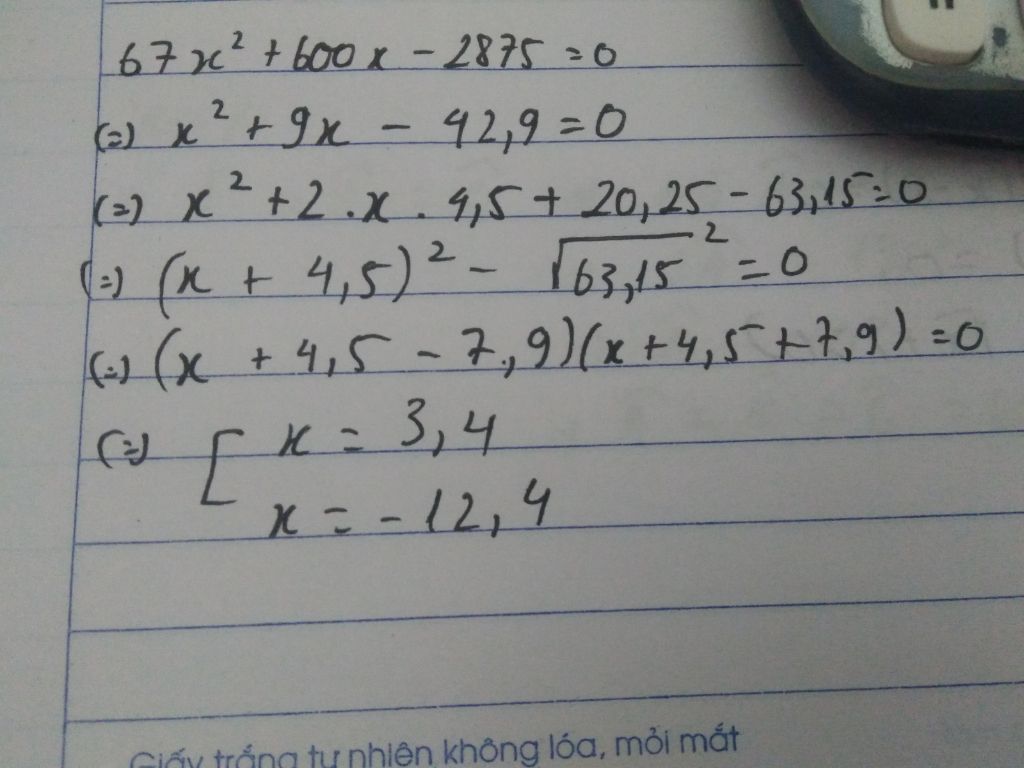 67x² + 600x - 2875 = 0
(=) x² + 9x - 42,9 = 0
(=) x² + 2 . x . 4,5 + 20,25 - 63,15 = 0
(=) (x + 4,5)² - √63,15² = 0
(=) (x + 4,5 - 7,9)(x + 4,5 + 7,9) = 0
(=) [ x = 3,4
x = -12,4
Giấy trắng tự nhiên không lóa, mỏi mắt